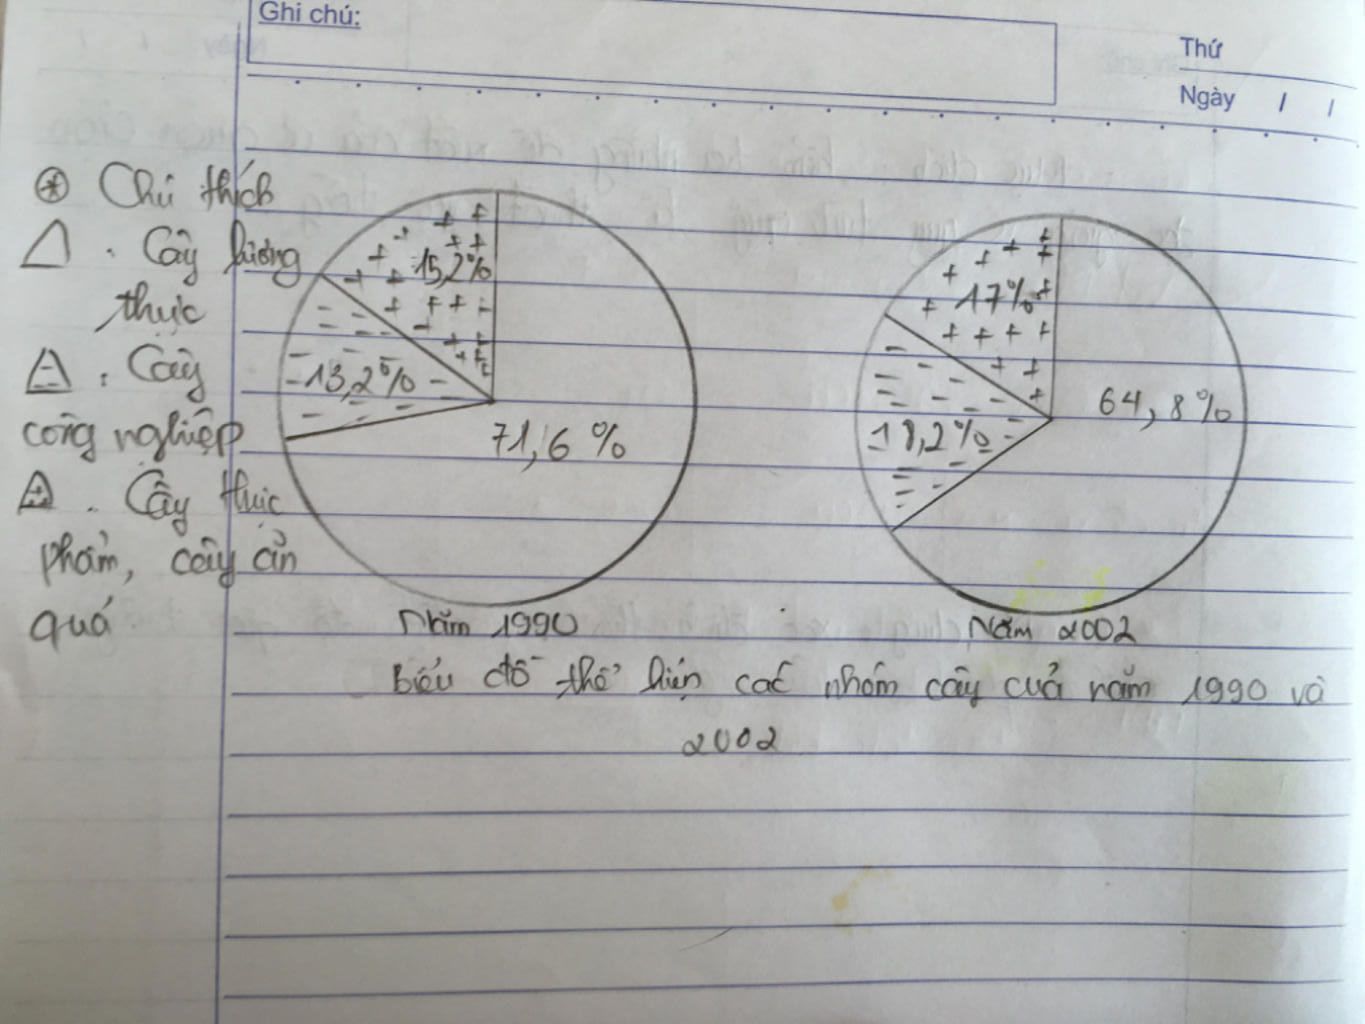 Ghi chú:
Thứ
Ngày / /
Chú thích
. Cây lương
thực
. Cây
công nghiệp
. Cây thực
phẩm, cây ăn
quả
15,2%
13,2%
71,6 %
Năm 1990
17%
18,2%
64,8%
Năm 2002
Biểu đồ thể hiện các nhóm cây của năm 1990 và
2002